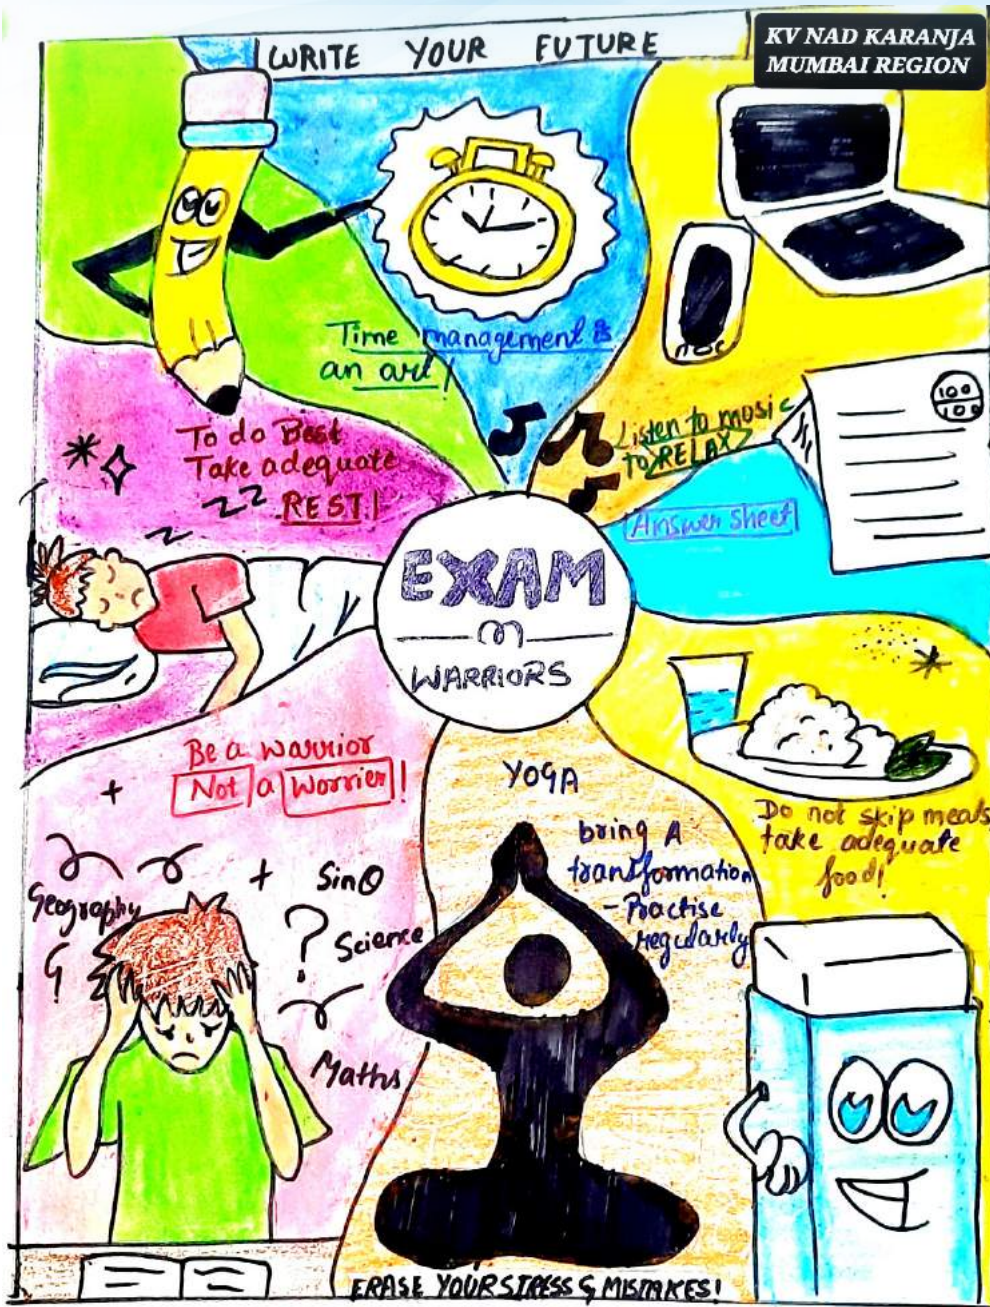 WRITE YOUR FUTURE
KV NAD KARANJA
MUMBAI REGION
Time management is
an art!
To do Best
Take adequate
zz REST!
z
Listen to music
to RELAX
100
100
Answer Sheet
EXAM
WARRIORS
Be a warrior
Not a Worrier!
YOGA
bring A
transformation
- Practise
regularly
Do not skip meals
take adequate
food!
+
+ Sinθ
Geography
?
Science
Maths
ERASE YOUR STRESS & MISTAKES!